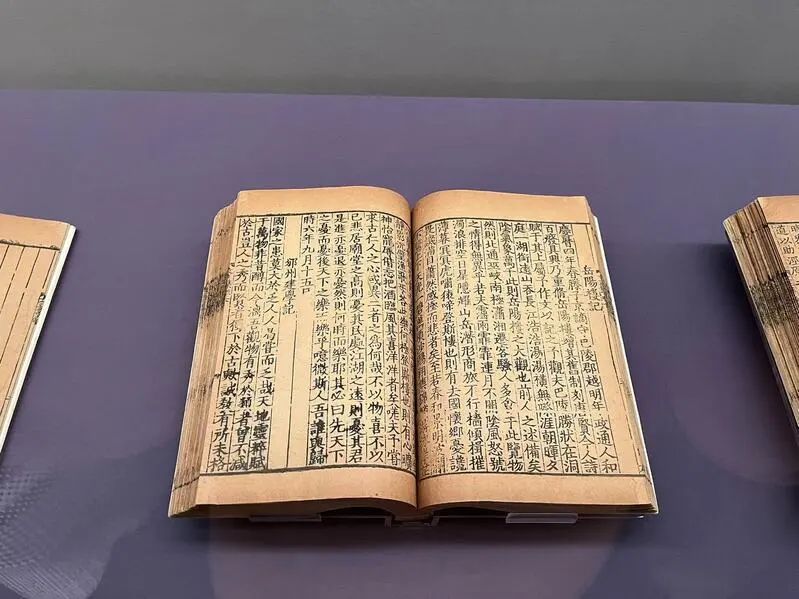 岳陽樓記
慶曆四年春滕子京謫守巴陵郡越明年政通人和
百廢具興乃重脩岳陽樓增其舊制刻唐賢今人詩
賦于其上屬予作文以記之予觀夫巴陵勝狀在洞
庭一湖銜遠山吞長江浩浩湯湯橫無際涯朝暉夕
陰氣象萬千此則岳陽樓之大觀也前人之述備矣
然則北通巫峽南極瀟湘遷客騷人多會于此覽物
之情得無異乎若夫霪雨霏霏連月不開陰風怒號
濁浪排空日星隱曜山岳潛形商旅不行檣傾楫摧
薄暮冥冥虎嘯猿啼登斯樓也則有去國懷鄉憂讒
者矣至若春和景明
神怡寵辱偕忘把酒臨風其喜洋洋者矣嗟夫予嘗
求古仁人之心或異二者之為何哉不以物喜不以
己悲居廟堂之高則憂其民處江湖之遠則憂其君
是進亦憂退亦憂然則何時而樂耶其必曰先天下
之憂而憂後天下之樂而樂乎噫微斯人吾誰與歸
時六年九月十五日
邠州建學記
國家之患莫大於乏人人曷嘗而乏哉天地靈粹賦
于萬物非昔醇而今漓吾觀物有秀於類者曾不減
於古豈人之秀而賢者獨下於古歟誠教有所未格